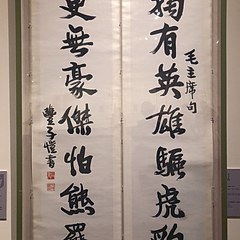 獨有英雄驅虎豹
毛主席句
更無豪傑怕熊羆
豐子愷書